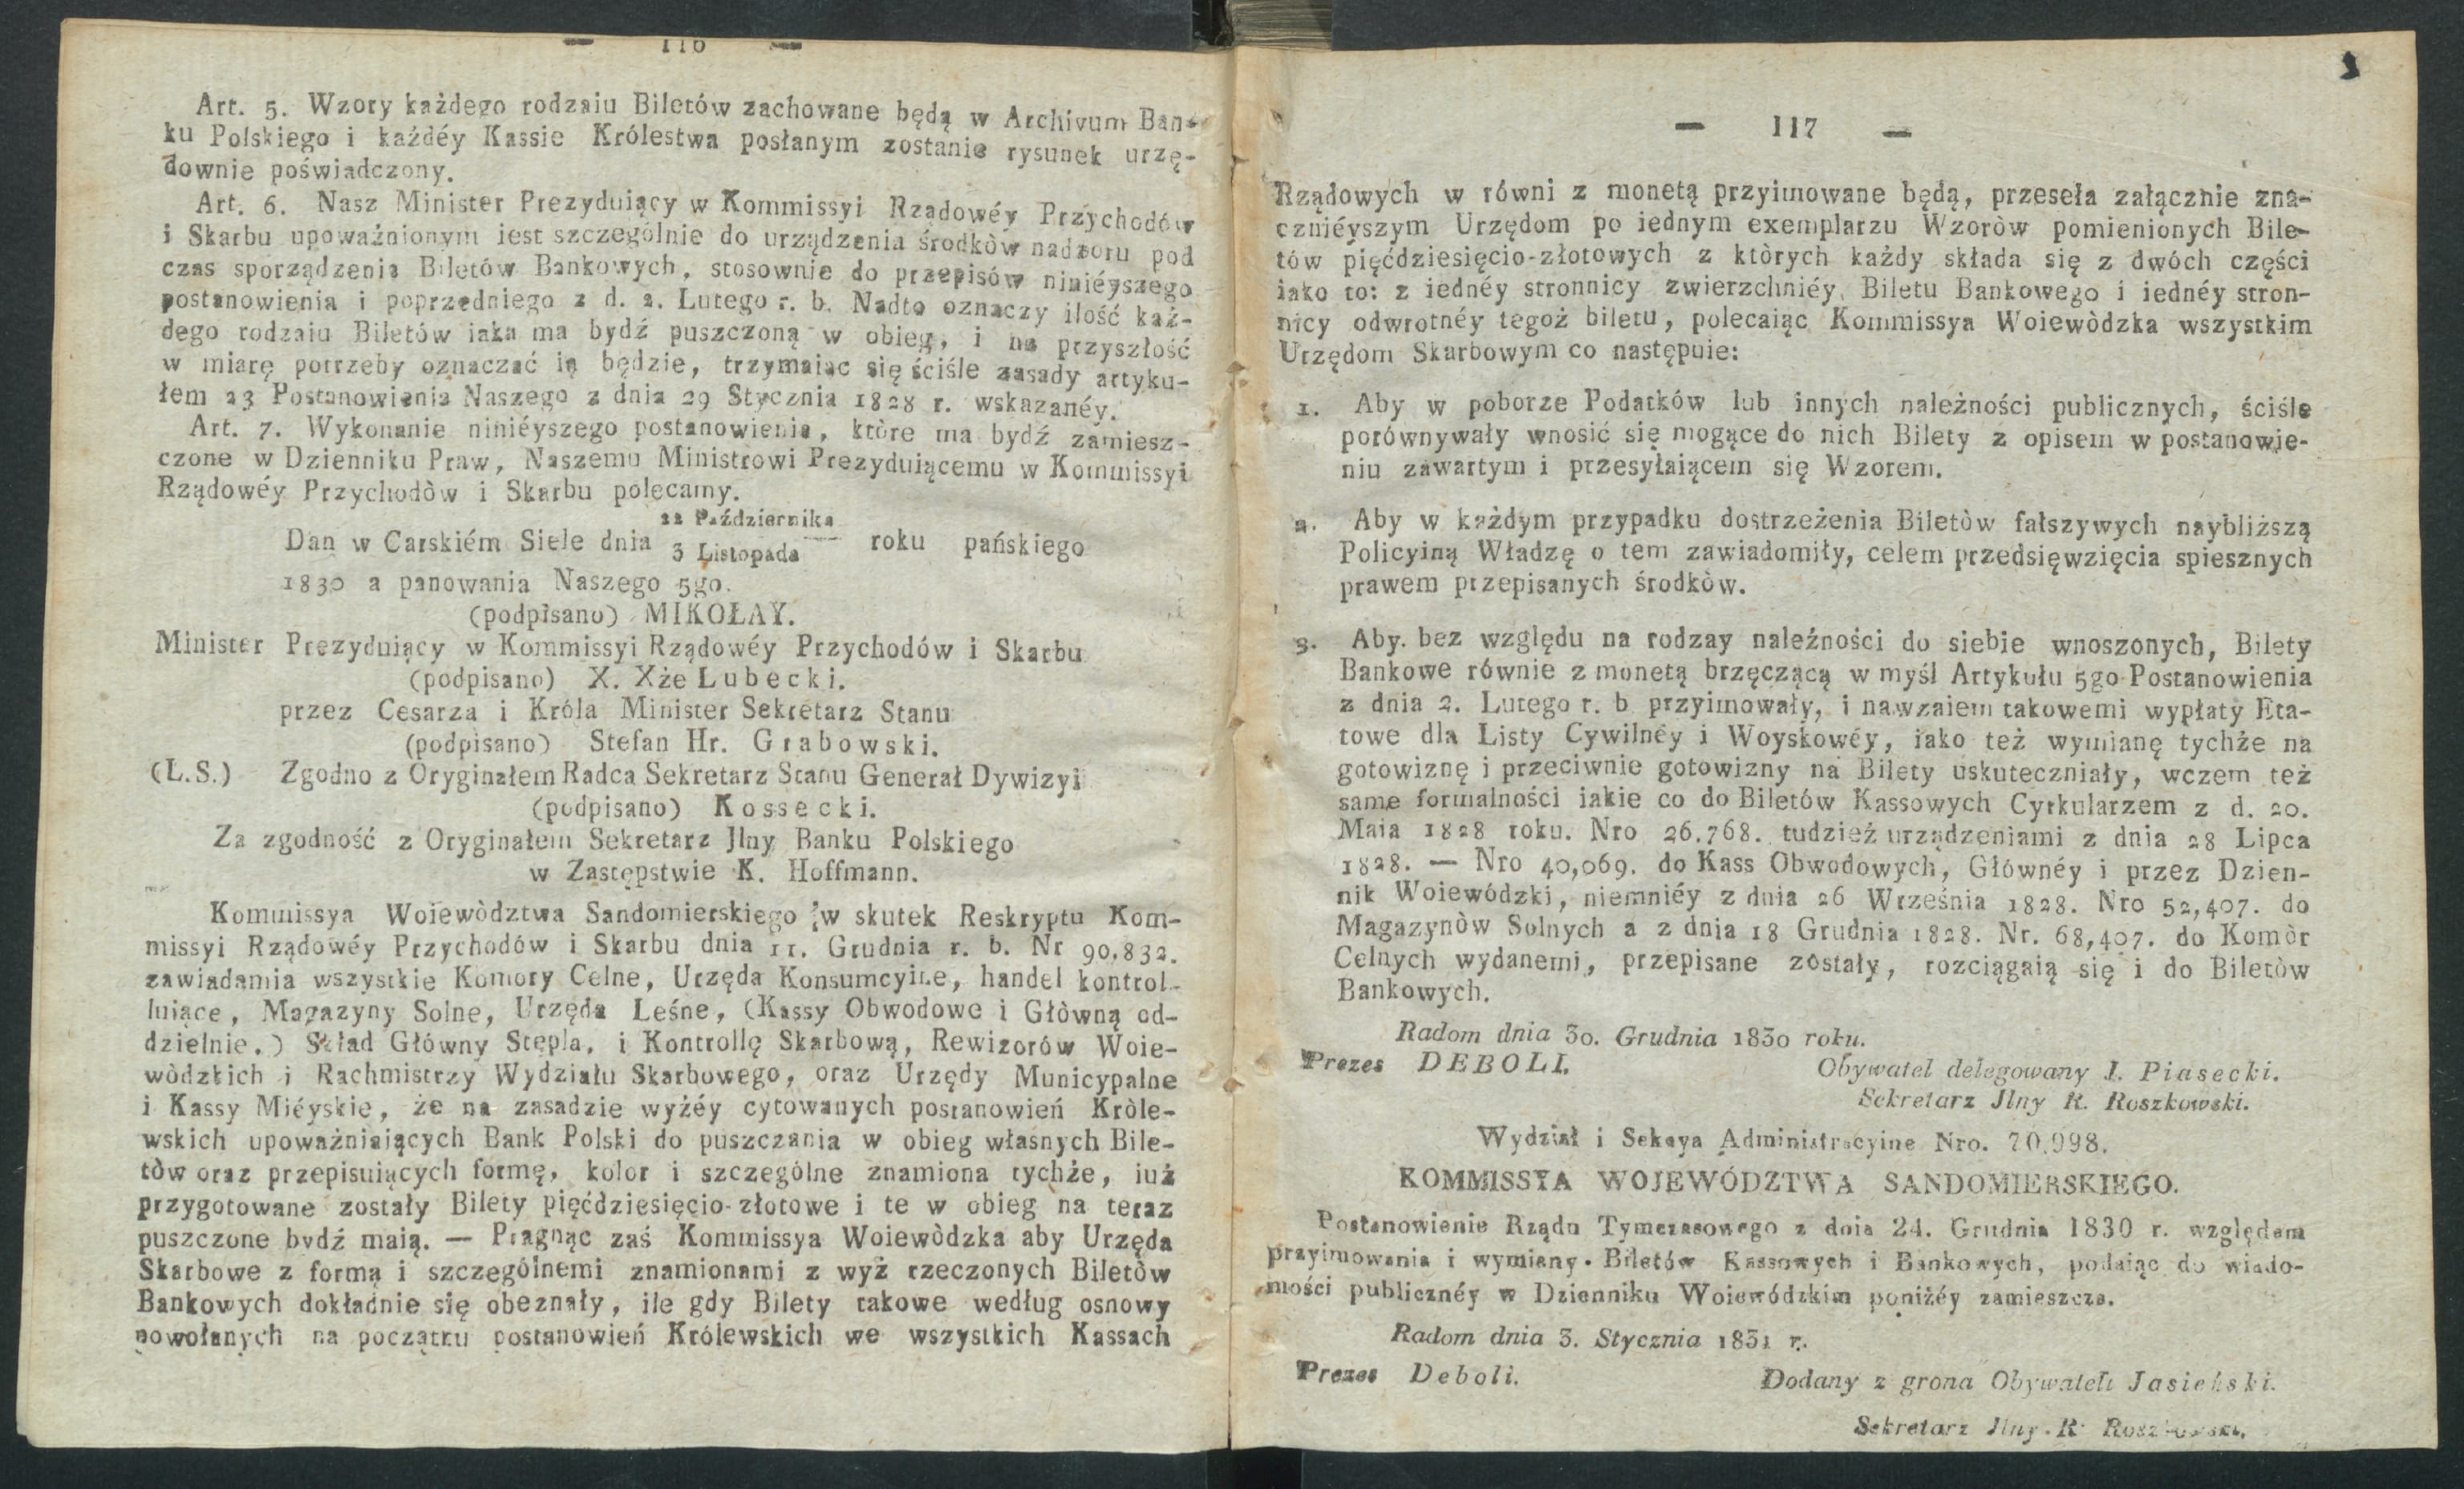 — 116 —
Art. 5. Wzory każdego rodzaiu Biletów zachowane będą w Archivum Ban-
ku Polskiego i każdéy Kassie Królestwa posłanym zostanie rysunek urzę-
downie poświadczony.
Art. 6. Nasz Minister Prezyduiący w Kommissyi Rządowéy Przychodów
i Skarbu upoważnionym iest szczególnie do urządzenia środkòw nadzoru pod
czas sporządzenia Biletów Bankowych, stosownie do przepisów niniéyszego
postanowienia i poprzedniego z d. 2. Lutego r. b. Nadto oznaczy ilość każ-
dego rodzaiu Biletów iaka ma bydź puszczoną w obieg, i na przyszłość
w miarę potrzeby oznaczać ią będzie, trzymaiąc się ściśle zasady artyku-
łem 23 Postanowienia Naszego z dnia 29 Stycznia 1828 r. wskazanéy.
Art. 7. Wykonanie niniéyszego postanowienia, które ma bydź zamiesz-
czone w Dzienniku Praw, Naszemu Ministrowi Prezyduiącemu w Kommissyi
Rządowéy Przychodòw i Skarbu polecamy.
22 Października
Dan w Carskiém Siele dnia — roku pańskiego
3 Listopada
1830 a panowania Naszego 5go.
(podpisano) MIKOŁAY.
Minister Prezyduiący w Kommissyi Rządowéy Przychodów i Skarbu
(podpisano) X. Xże Lubecki.
przez Cesarza i Króla Minister Sekretarz Stanu
(podpisano) Stefan Hr. Grabowski.
(L.S.) Zgodno z Oryginałem Radca Sekretarz Stanu Generał Dywizyi
(podpisano) Kossecki.
Za zgodność z Oryginałem Sekretarz Jlny Banku Polskiego
w Zastępstwie K. Hoffmann.
Kommissya Woiewòdztwa Sandomierskiego w skutek Reskryptu Kom-
missyi Rządowéy Przychodów i Skarbu dnia 11. Grudnia r. b. Nr 90,832.
zawiadamia wszystkie Komory Celne, Urzęda Konsumcyine, handel kontrol-
luiące, Magazyny Solne, Urzęda Leśne, (Kassy Obwodowe i Głòwną od-
dzielnie.) Skład Główny Stępla, i Kontrollę Skarbową, Rewizorów Woie-
wòdzkich i Rachmistrzy Wydziału Skarbowego, oraz Urzędy Municypalne
i Kassy Miéyskie, że na zasadzie wyżéy cytowanych postanowień Króle-
wskich upoważniaiących Bank Polski do puszczania w obieg własnych Bile-
tòw oraz przepisuiących formę, kolor i szczególne znamiona tychże, iuż
przygotowane zostały Bilety pięćdziesięcio-złotowe i te w obieg na teraz
puszczone bydź maią. — Pragnąc zaś Kommissya Woiewòdzka aby Urzęda
Skarbowe z formą i szczególnemi znamionami z wyż rzeczonych Biletòw
Bankowych dokładnie się obeznały, ile gdy Bilety takowe według osnowy
powołanych na początku postanowień Królewskich we wszystkich Kassach
— 117 —
Rządowych w równi z monetą przyimowane będą, przeseła załącznie zna-
czniéyszym Urzędom po iednym exemplarzu Wzoròw pomienionych Bile-
tów pięćdziesięcio-złotowych z których każdy składa się z dwóch części
iako to: z iednéy stronnicy zwierzchniéy, Biletu Bankowego i iednéy stron-
nicy odwrotnéy tegoż biletu, polecaiąc Kommissya Woiewòdzka wszystkim
Urzędom Skarbowym co następuie:
1. Aby w poborze Podatków lub innych należności publicznych, ściśle
porównywały wnosić się mogące do nich Bilety z opisem w postanowie-
niu zawartym i przesyłaiącem się Wzorem.
2. Aby w każdym przypadku dostrzeżenia Biletòw fałszywych naybliższą
Policyiną Władzę o tem zawiadomiły, celem przedsięwzięcia spiesznych
prawem przepisanych środków.
3. Aby. bez względu na rodzay należności do siebie wnoszonych, Bilety
Bankowe równie z monetą brzęczącą w myśl Artykułu 5go Postanowienia
z dnia 2. Lutego r. b. przyimowały, i nawzaiem takowemi wypłaty Eta-
towe dla Listy Cywilnéy i Woyskowéy, iako też wymianę tychże na
gotowiznę i przeciwnie gotowizny na Bilety uskuteczniały, wczem też
same formalności iakie co do Biletów Kassowych Cyrkularzem z d. 20.
Maia 1828 roku. Nro 26,768. tudzież urządzeniami z dnia 28 Lipca
1828. — Nro 40,069. do Kass Obwodowych, Głównéy i przez Dzien-
nik Woiewódzki, niemniéy z dnia 26 Września 1828. Nro 52,407. do
Magazynòw Solnych a z dnia 18 Grudnia 1828. Nr. 68,407. do Komòr
Celnych wydanemi, przepisane zostały, rozciągaią się i do Biletòw
Bankowych.
Radom dnia 30. Grudnia 1830 roku.
Prezes DEBOLI.
Obywatel delegowany J. Piasecki.
Sekretarz Jlny R. Roszkowski.
Wydział i Sekcya Administracyine Nro. 70,998.
KOMMISSYA WOJEWÓDZTWA SANDOMIERSKIEGO.
Postanowienie Rządu Tymczasowego z dnia 24. Grudnia 1830 r. względem
przyimowania i wymiany Biletów Kassowych i Bankowych, podaiąc do wiado-
mości publicznéy w Dzienniku Woiewódzkim poniżéy zamieszcza.
Radom dnia 3. Stycznia 1831 r.
Prezes Deboli.
Dodany z grona Obywateli Jasieński.
Sekretarz Jlny R. Roszkowski.